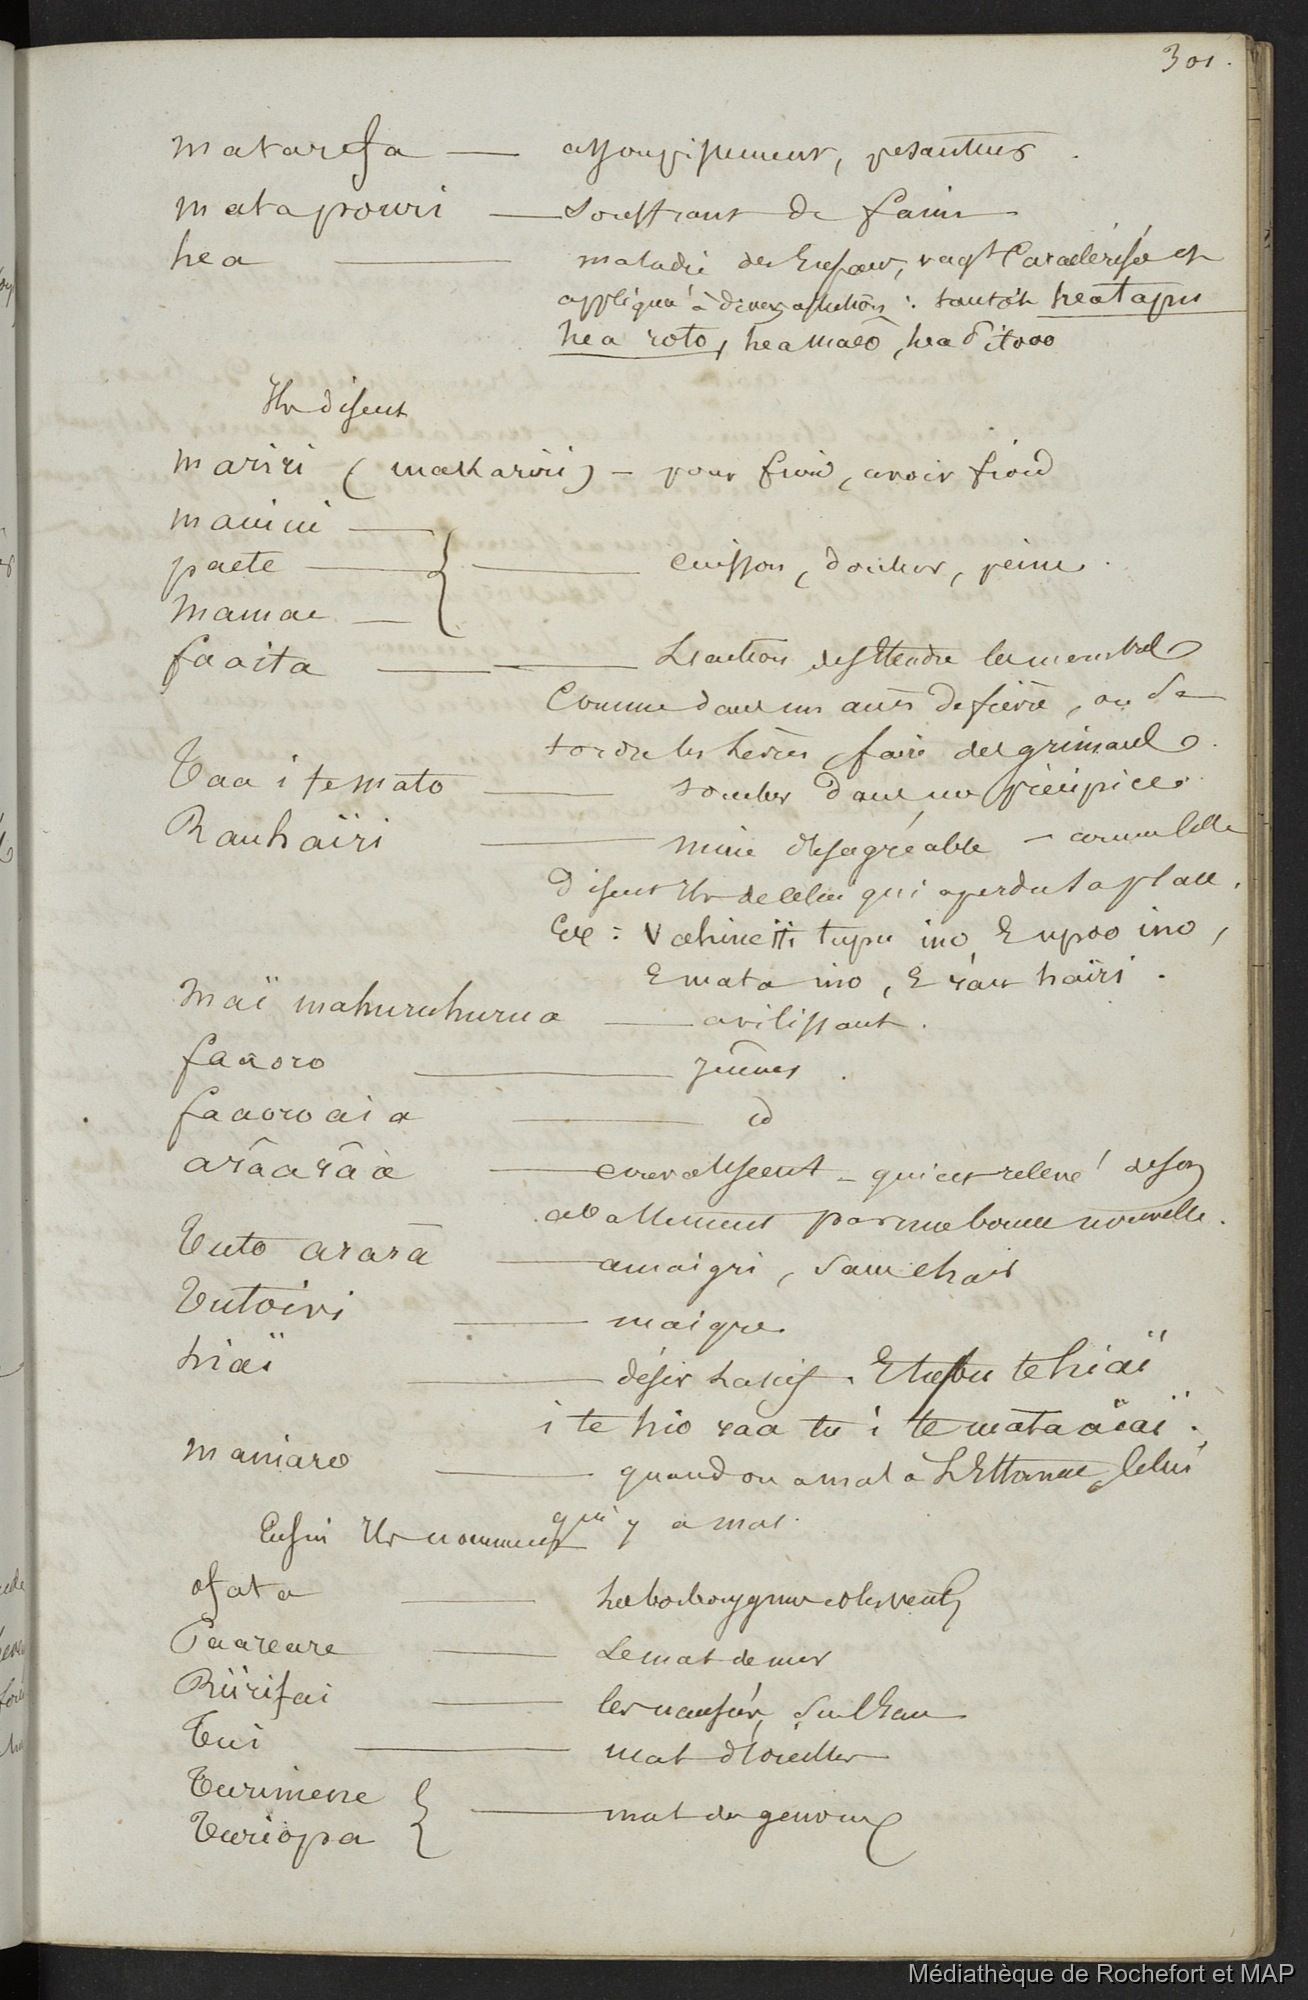 301.
matarefa — assoupissement, pesanteurs.
matapouri — souffrant de faim
hea — maladie des Enfans, vagt Caractérisée et
appliquée à divers affections : tantôt heatapu
hea roto, hea maeo, hea
Ils disent
mariri (makariri) — pour froid, avoir froid
manini —
paete — { — cuisson, douleur, peine.
Mamae —
faaita — L'action de s'Etendre les membres
Comme dans un accès de fièvre, ou de
tordre les lèvres, faire des grimaces.
Taa i te mato — tomber dans un précipice.
Rauhaïri — mine désagréable — comme celle
disent Ils de celui qui a perdu sa place.
Ex : Vahine iti tupu ino, E upoo ino,
E mata ino, E rau haïri.
Maï mahuruhurua — avilissant.
faaoro — jeûnes.
faaoroaia — id
arâarâa — convalescent — qui est relevé de son
abattement par une bonne nouvelle.
Tuto arara — amaigri, sans chair
Tutoivi — maigre.
hiaï — désir lascif. E tupu te hiaï
i te hio raa tu i te mata
maniaro — quand on a mal à L'Estomac, Celui
qui y a mal.
Enfin Ils nomment
ofata — Les borborygmes et les vents
Paareare — Le mal de mer
Riirifai — les nausées, sur l'Eau
Tui — mal d'oreilles
Turimene
Turiopa { — mal des genoux
Médiathèque de Rochefort et MAP